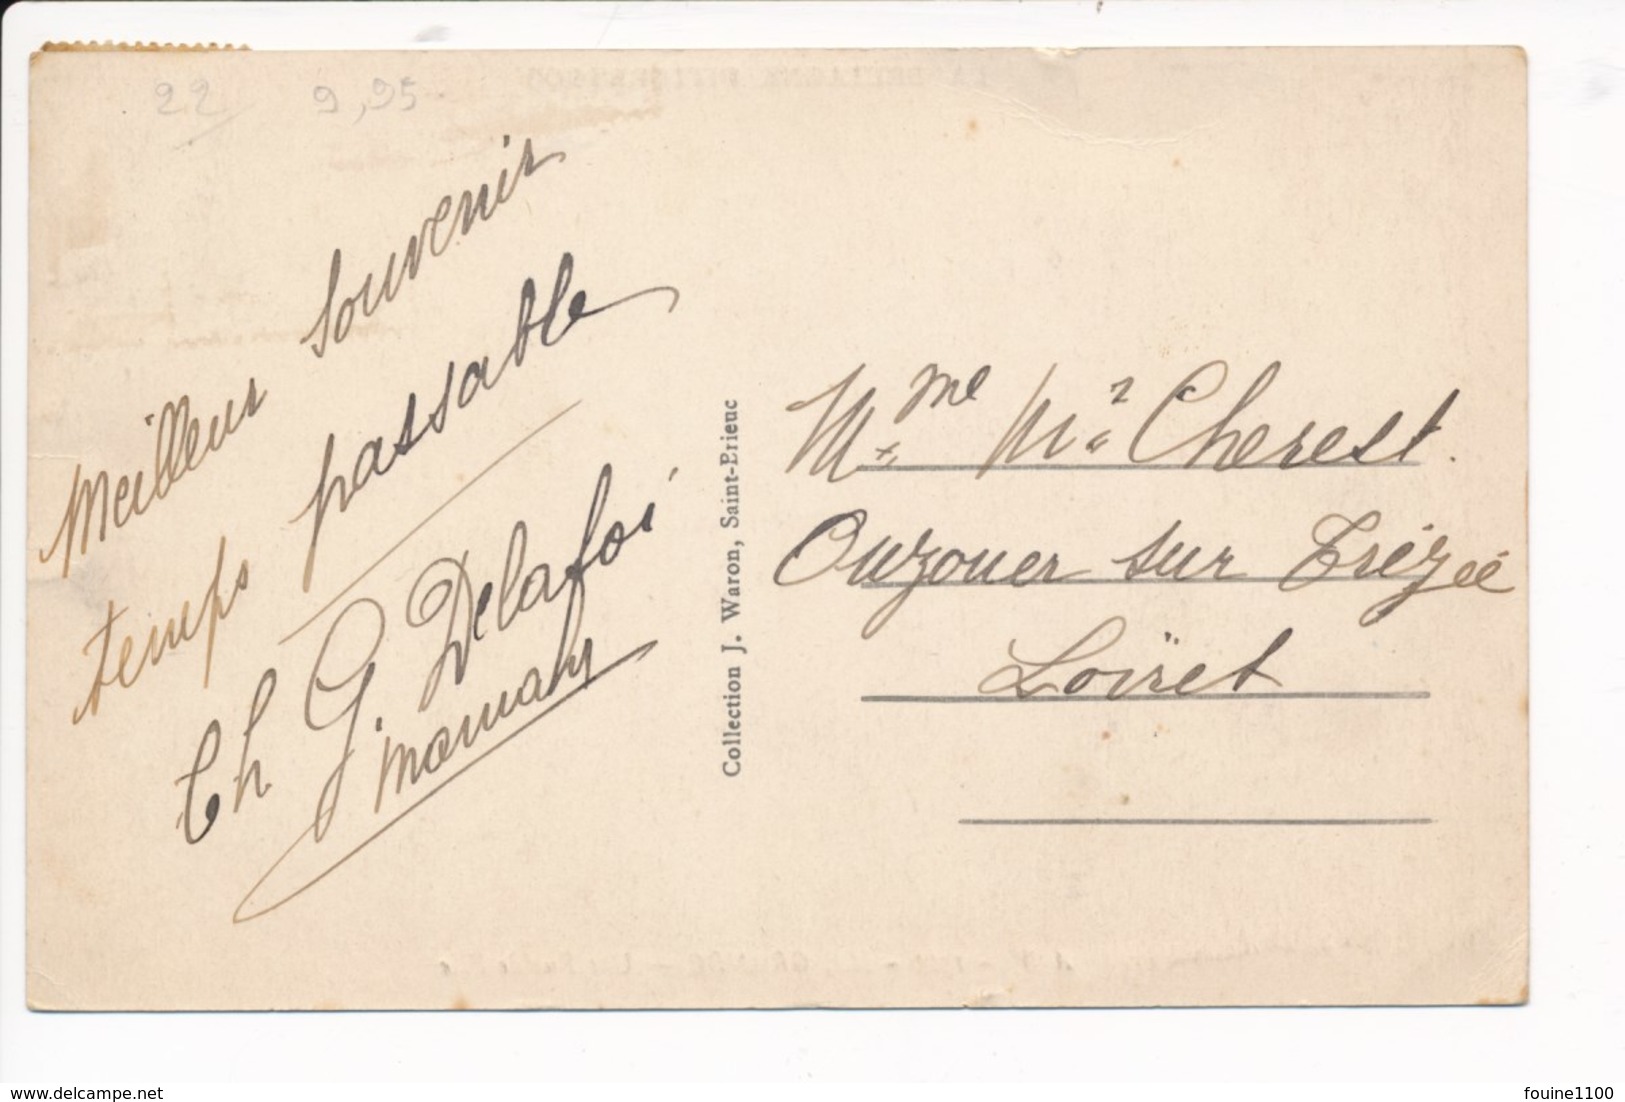 22 9,95
Meilleur souvenir
temps passable
Ch G. Delafoi
Collection J. Waron, Saint-Brieuc
Mme Mr Cherest.
Ouzouer sur Trézée
Loiret
delcampe.net
fouine1100